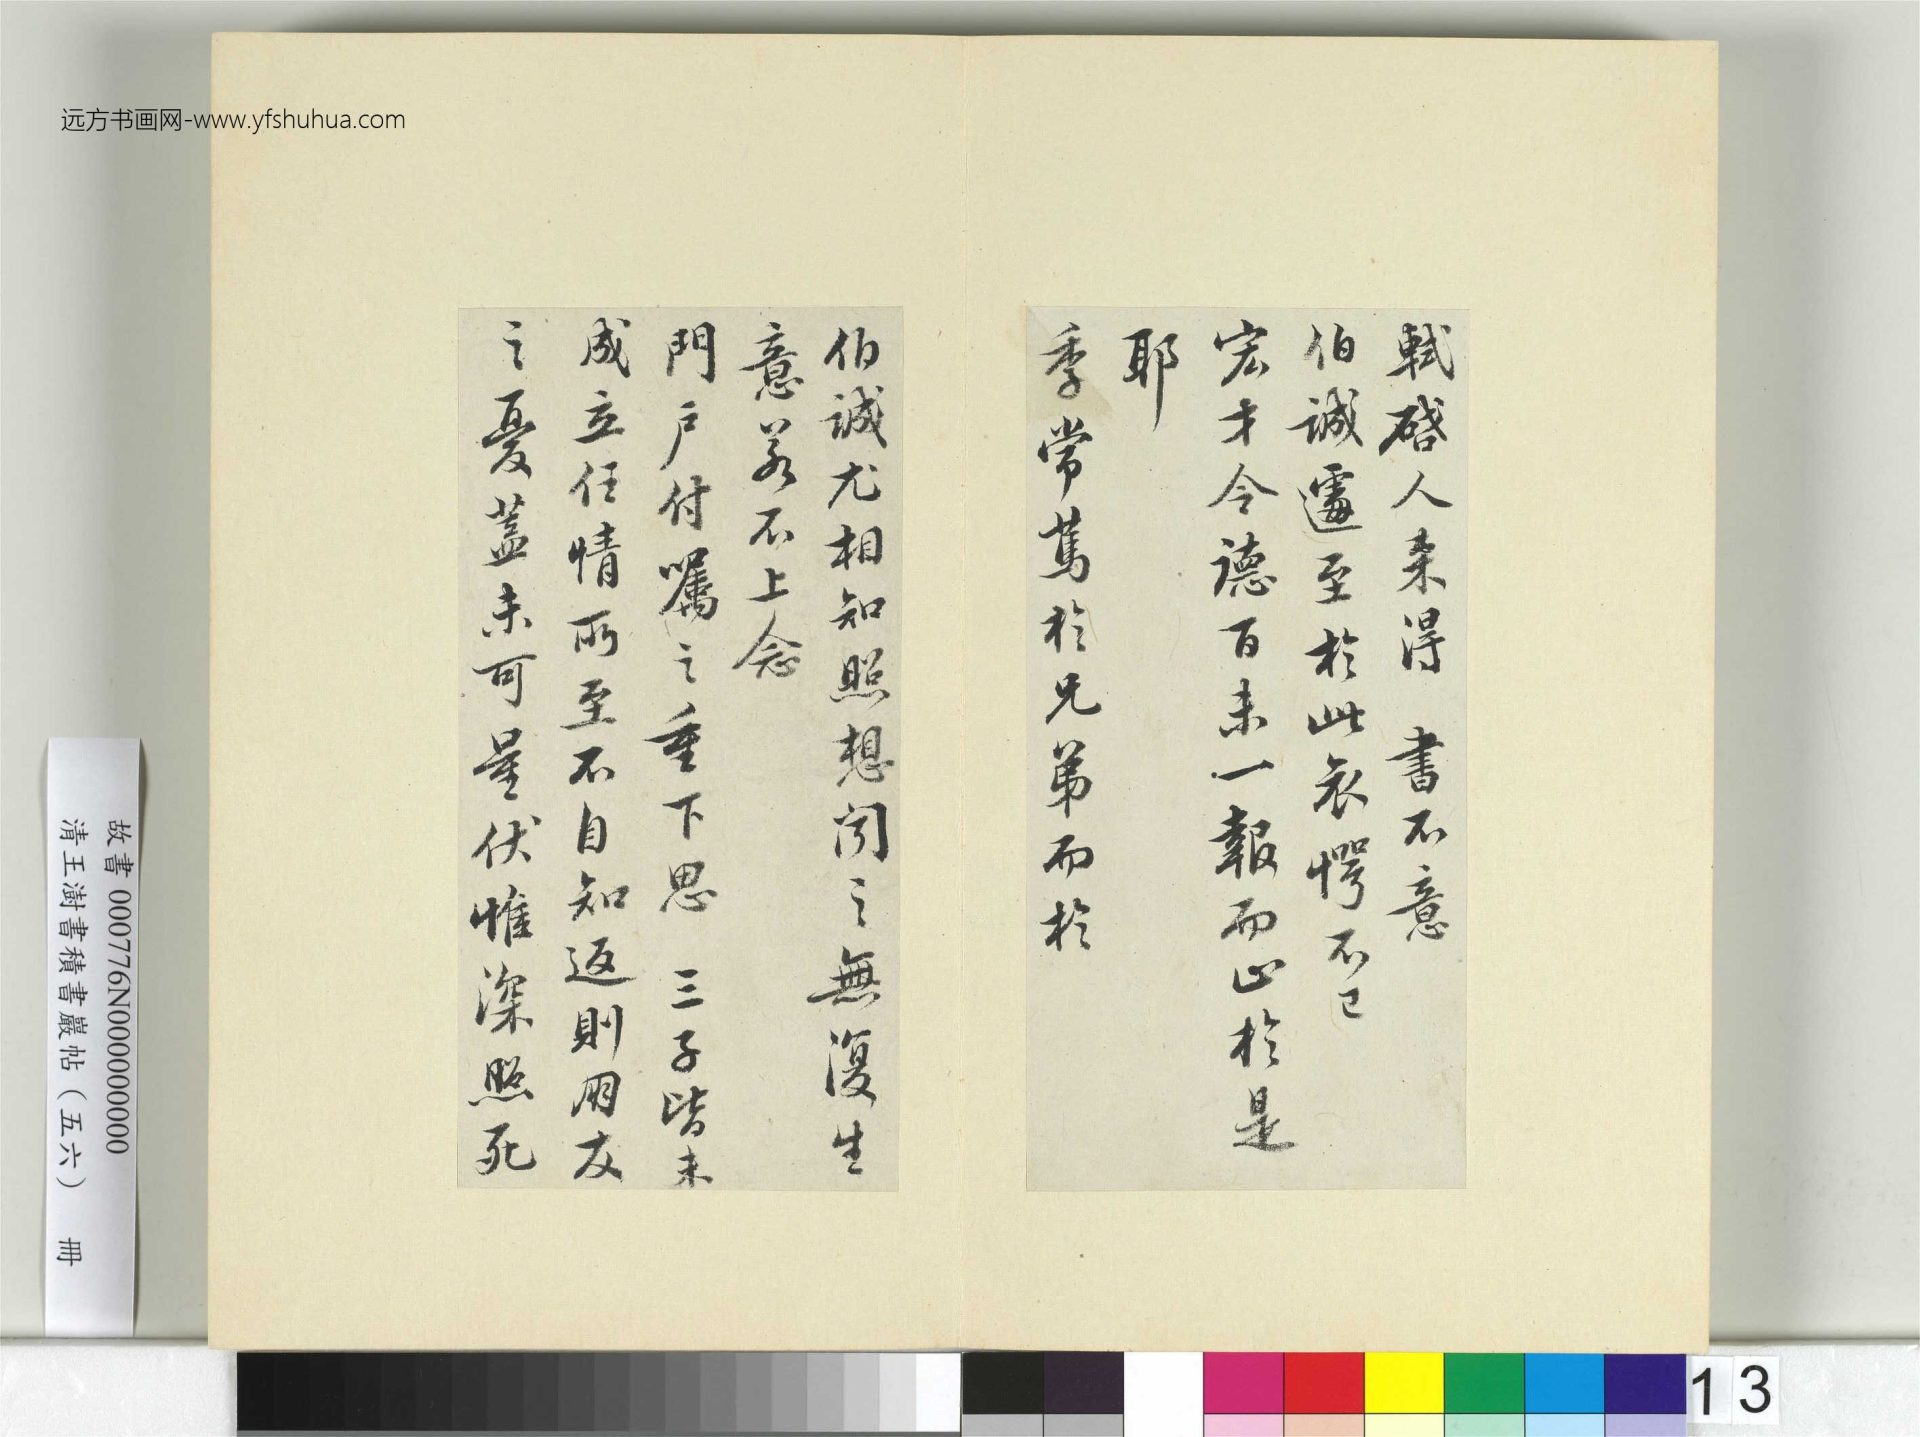 远方书画网-www.yfshuhua.com
軾啓人来得 書不意
伯誠遽至於此哀愕不已
宏才令德百未一報而止於是
耶
季常篤於兄弟而於
伯誠尤相知照想聞之無復生
意若不上念
門户付囑之重下思 三子皆未
成立任情所至不自知返則朋友
之憂蓋未可量伏惟深照死
故書 000776N000000000
清王澍書積書巖帖（五六） 冊
13